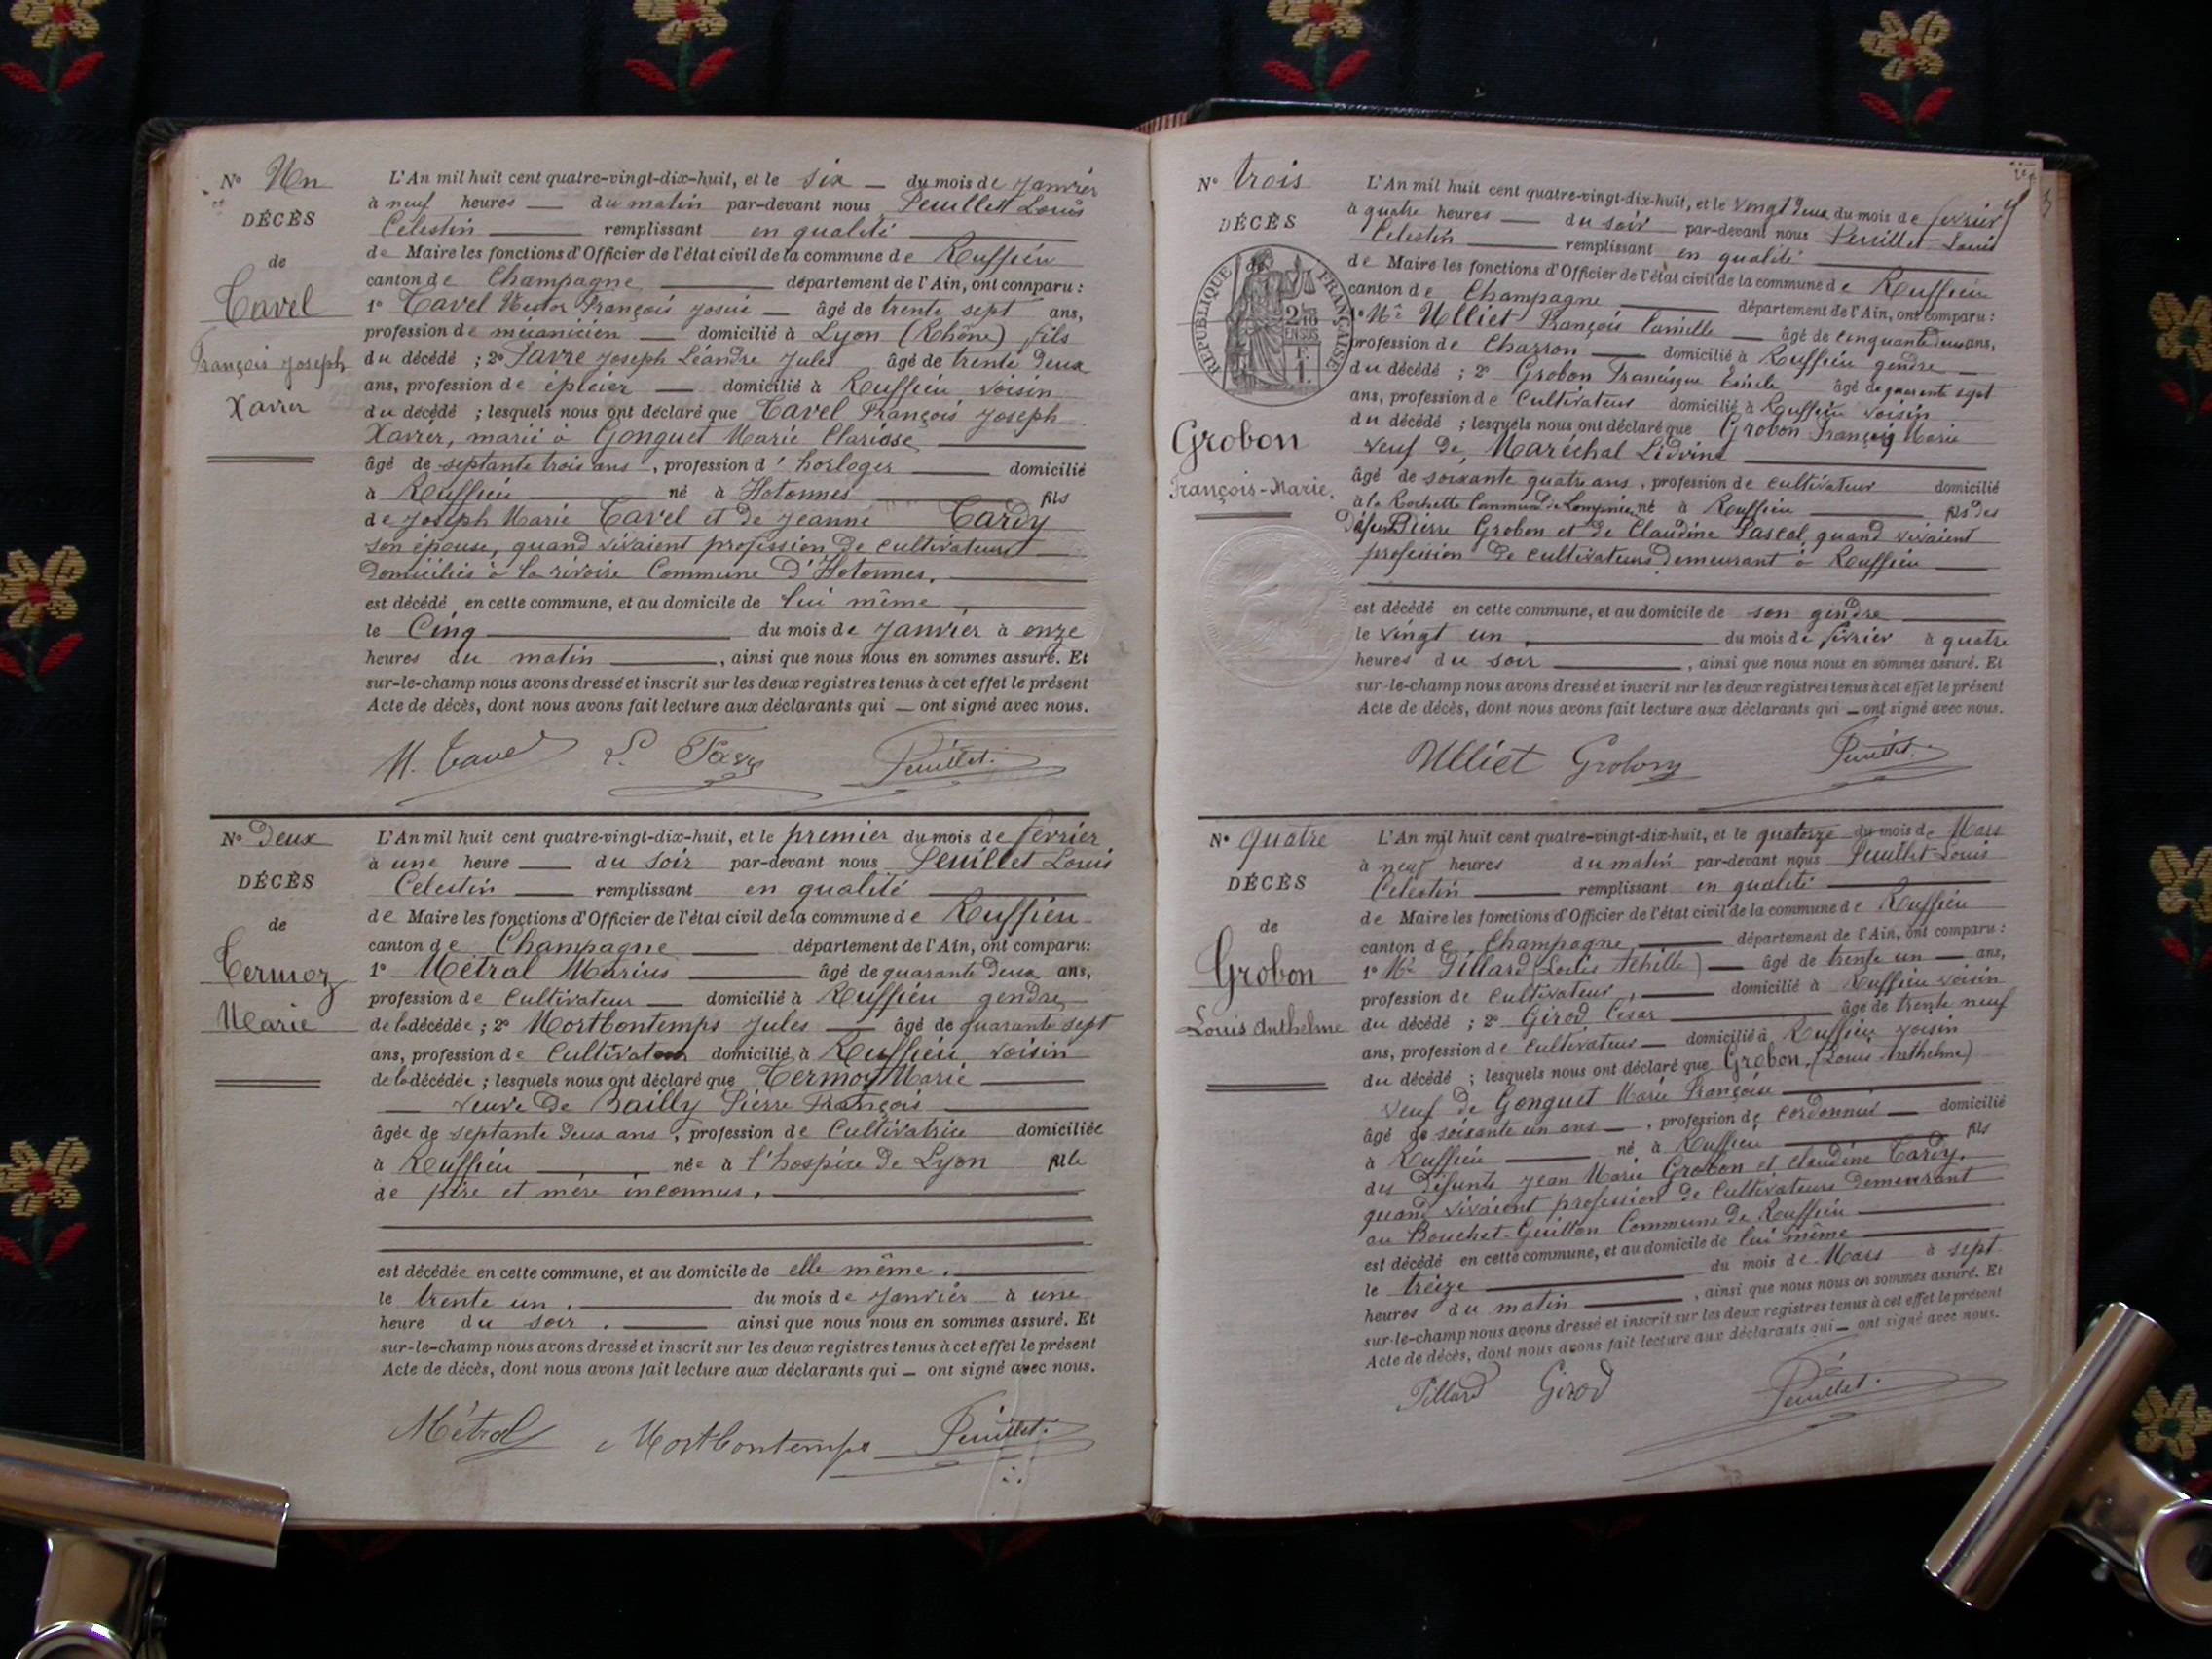 N° Un
DÉCÈS
de
Tavel
François Joseph
Xavier
L'An mil huit cent quatre-vingt-dix-huit, et le six du mois de Janvier
à neuf heures du matin par-devant nous Peuillet Louis
Celestin remplissant en qualité
de Maire les fonctions d'Officier de l'état civil de la commune de Ruffieu
canton de Champagne département de l'Ain, ont comparu :
1° Tavel François Josué âgé de trente sept ans,
profession de mécanicien domicilié à Lyon (Rhône) fils
du décédé ; 2° Favre Joseph Léandre Jules âgé de trente deux
ans, profession de épicier domicilié à Ruffieu voisin
du décédé ; lesquels nous ont déclaré que Tavel François Joseph
Xavier, marié à Gonguet Marie Clarisse
âgé de septante trois ans, profession d'horloger domicilié
à Ruffieu né à Hotonnes fils
de Joseph Marie Tavel et de Jeanne Tardy
son épouse, quand vivaient profession de cultivateurs
domiciliés à la rivoire Commune d'Hotonnes.
est décédé en cette commune, et au domicile de lui même
le Cinq du mois de Janvier à onze
heures du matin, ainsi que nous nous en sommes assuré. Et
sur-le-champ nous avons dressé et inscrit sur les deux registres tenus à cet effet le présent
Acte de décès, dont nous avons fait lecture aux déclarants qui — ont signé avec nous.
Peuillet.
N° Deux
DÉCÈS
de
Termoz
Marie
L'An mil huit cent quatre-vingt-dix-huit, et le premier du mois de février
à une heure du soir par-devant nous Peuillet Louis
Celestin remplissant en qualité
de Maire les fonctions d'Officier de l'état civil de la commune de Ruffieu
canton de Champagne département de l'Ain, ont comparu:
1° Métral Marius âgé de quarante deux ans,
profession de Cultivateur domicilié à Ruffieu gendre
de la décédée ; 2° Mortbontemps Jules âgé de quarante sept
ans, profession de Cultivateur domicilié à Ruffieu voisin
de la décédée ; lesquels nous ont déclaré que Termoz Marie
veuve de Bailly Pierre François
âgée de septante deux ans, profession de Cultivatrice domiciliée
à Ruffieu née à l'hospice de Lyon fille
de père et mère inconnus.
est décédée en cette commune, et au domicile de elle même.
le trente un. du mois de Janvier à une
heure du soir. ainsi que nous nous en sommes assuré. Et
sur-le-champ nous avons dressé et inscrit sur les deux registres tenus à cet effet le présent
Acte de décès, dont nous avons fait lecture aux déclarants qui — ont signé avec nous.
Métral Mortbontemps Peuillet.
N° trois
DÉCÈS
RÉPUBLIQUE FRANÇAISE
Grobon
François-Marie.
L'An mil huit cent quatre-vingt-dix-huit, et le vingt deux du mois de février
à quatre heures du soir par-devant nous Peuillet Louis
Celestin remplissant en qualité
de Maire les fonctions d'Officier de l'état civil de la commune de Ruffieu
canton de Champagne département de l'Ain, ont comparu :
1° Mr Ulliet François Camille âgé de cinquante deux ans,
profession de Charron domicilié à Ruffieu gendre
du décédé ; 2° Grobon Francisque Emile âgé de quarante sept
ans, profession de Cultivateur domicilié à Ruffieu voisin
du décédé ; lesquels nous ont déclaré que Grobon François Marie
veuf de, Maréchal Lidvine
âgé de soixante quatre ans, profession de cultivateur domicilié
à la Rochette Commune de né à Ruffieu fils des
défunts Pierre Grobon et de Claudine Pascal quand vivaient
profession de cultivateurs demeurant à Ruffieu
est décédé en cette commune, et au domicile de son gendre
le vingt un du mois de février à quatre
heures du soir, ainsi que nous nous en sommes assuré. Et
sur-le-champ nous avons dressé et inscrit sur les deux registres tenus à cet effet le présent
Acte de décès, dont nous avons fait lecture aux déclarants qui — ont signé avec nous.
Ulliet Grobon Peuillet.
N° quatre
DÉCÈS
de
Grobon
Louis Anthelme
L'An mil huit cent quatre-vingt-dix-huit, et le quatorze du mois de Mars
à neuf heures du matin par-devant nous Peuillet Louis
Celestin remplissant en qualité
de Maire les fonctions d'Officier de l'état civil de la commune de Ruffieu
canton de Champagne département de l'Ain, ont comparu :
1° Mr Pillard (Louis Achille) âgé de trente un ans,
profession de Cultivateur, domicilié à Ruffieu voisin
du décédé ; 2° Girod Cesar âgé de trente neuf
ans, profession de cultivateur domicilié à Ruffieu voisin
du décédé ; lesquels nous ont déclaré que Grobon, (Louis Anthelme)
veuf de Gonguet Marie Françoise
âgé de soixante un ans, profession de cordonnier domicilié
à Ruffieu né à Ruffieu fils
des défunts Jean Marie Grobon et Claudine Tardy,
quand vivaient profession de Cultivateurs demeurant
au Bouchet-Guillon Commune de Ruffieu
est décédé en cette commune, et au domicile de lui même
le treize du mois de Mars à sept
heures du matin, ainsi que nous nous en sommes assuré. Et
sur-le-champ nous avons dressé et inscrit sur les deux registres tenus à cet effet le présent
Acte de décès, dont nous avons fait lecture aux déclarants qui — ont signé avec nous.
Pillard Girod Peuillet.